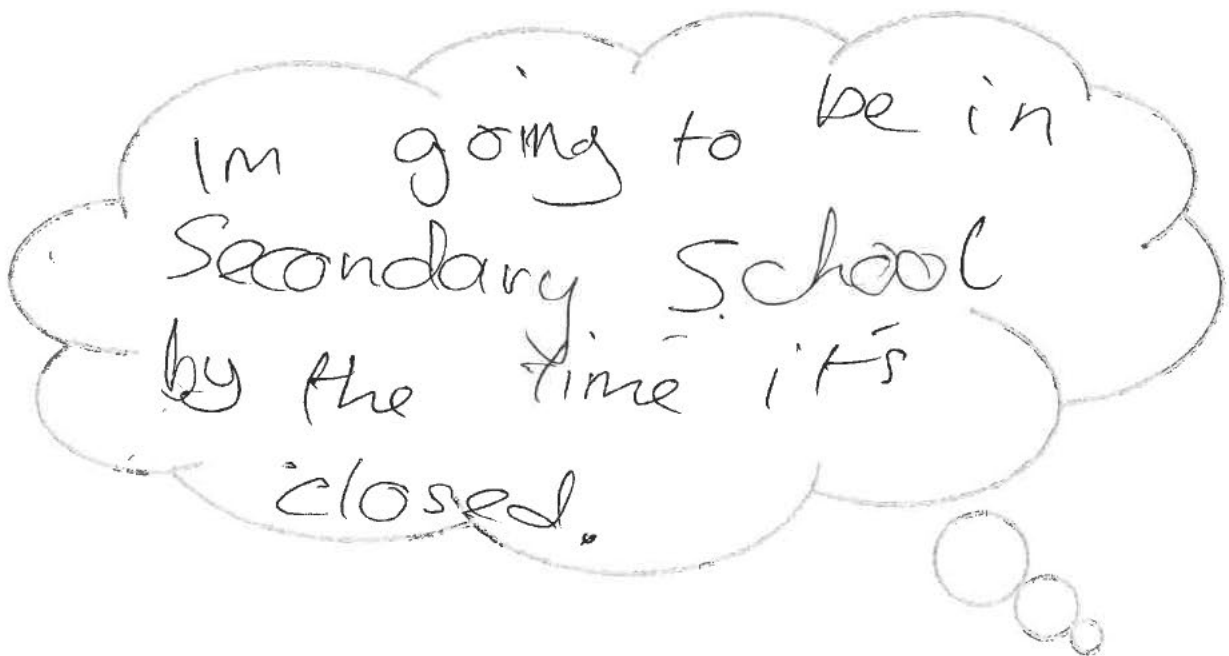 Im going to be in
Secondary School
by the time it's
closed.